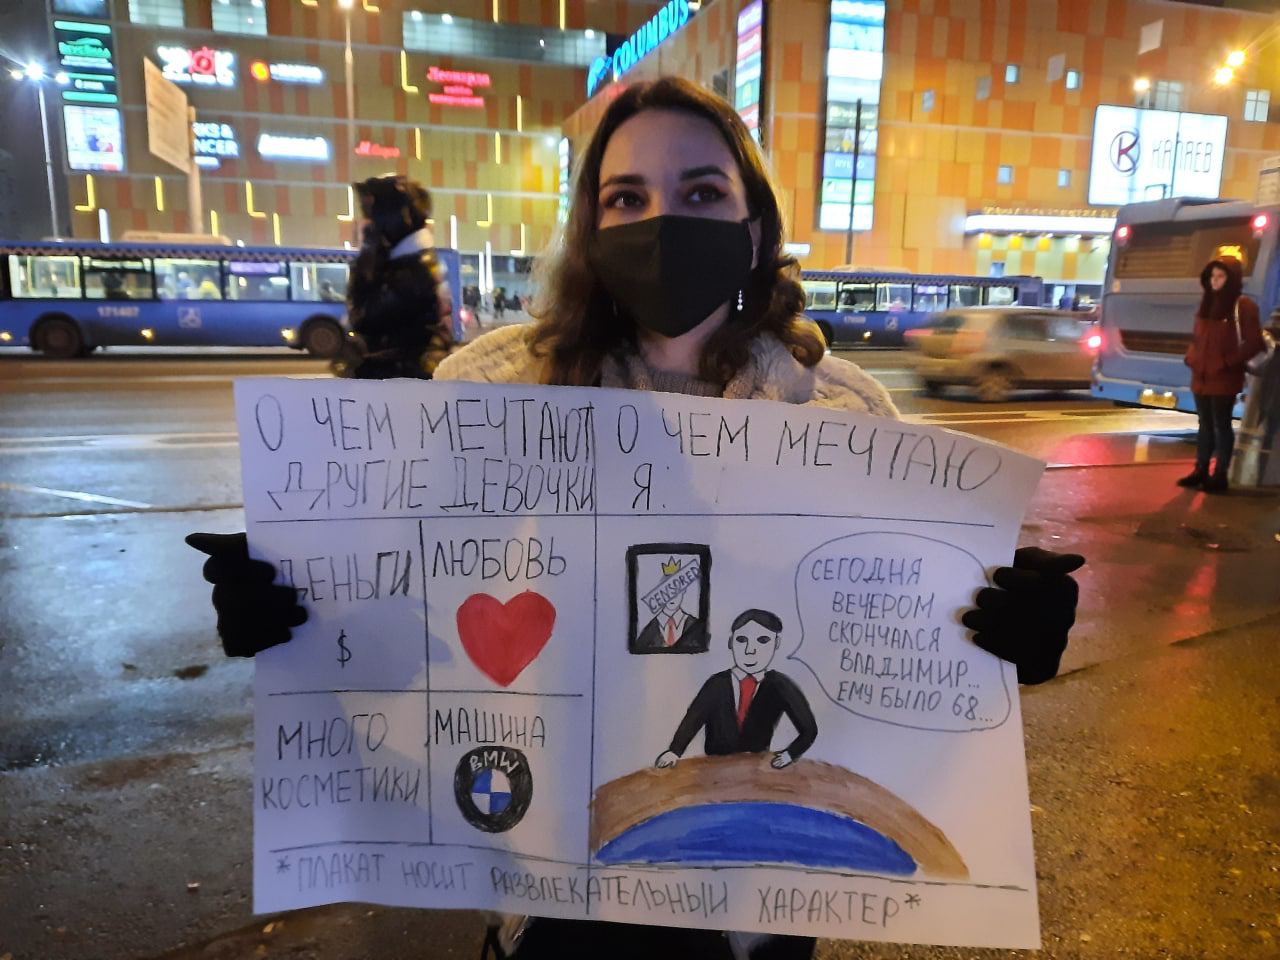 COLUMBUS
КАНАЕВ
171407
О ЧЕМ МЕЧТАЮТ
ДРУГИЕ ДЕВОЧКИ
О ЧЕМ МЕЧТАЮ
Я:
ДЕНЬГИ
$
ЛЮБОВЬ
МНОГО
КОСМЕТИКИ
МАШИНА
BMW
CENSORED
СЕГОДНЯ
ВЕЧЕРОМ
СКОНЧАЛСЯ
ВЛАДИМИР...
ЕМУ БЫЛО 68...
*ПЛАКАТ НОСИТ РАЗВЛЕКАТЕЛЬНЫЙ ХАРАКТЕР*